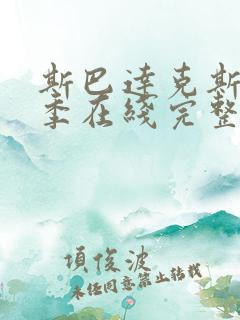 斯巴达克斯
季在线完整
项俊波
未经同意禁止转载